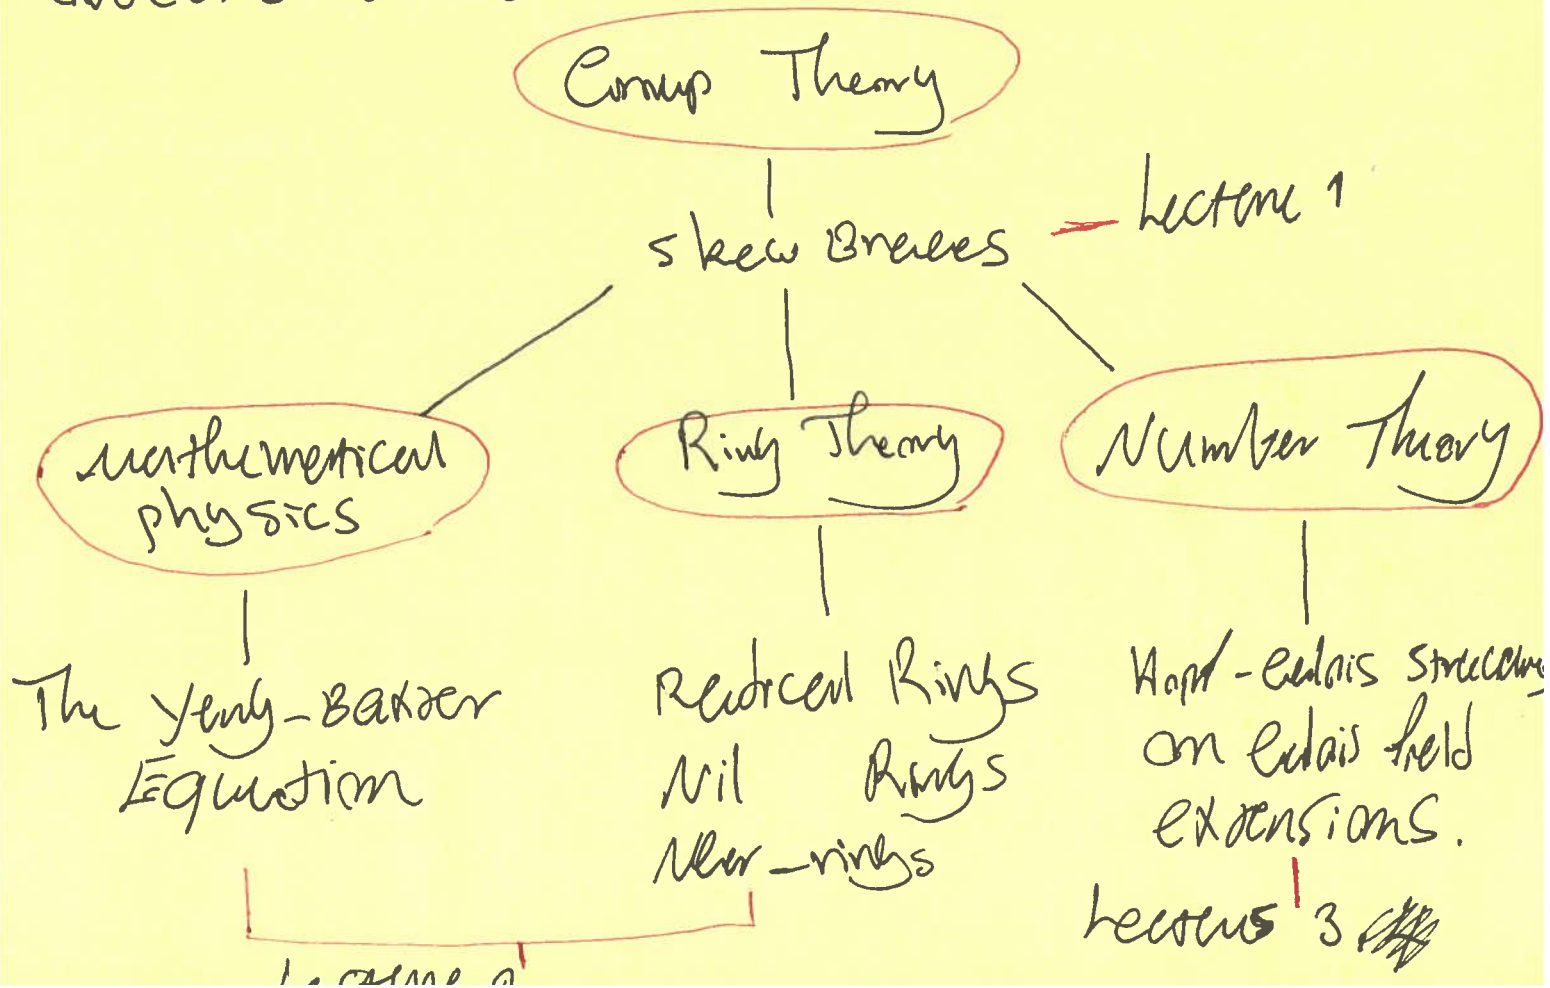 Group Theory
Skew Braces
Lecture 1
Mathematical
physics
Ring Theory
Number Theory
The Yang-Baxter
Equation
Radical Rings
Nil Rings
Near-rings
Hopf-Galois structures
on Galois field
extensions.
Lecture 3
Lecture 2